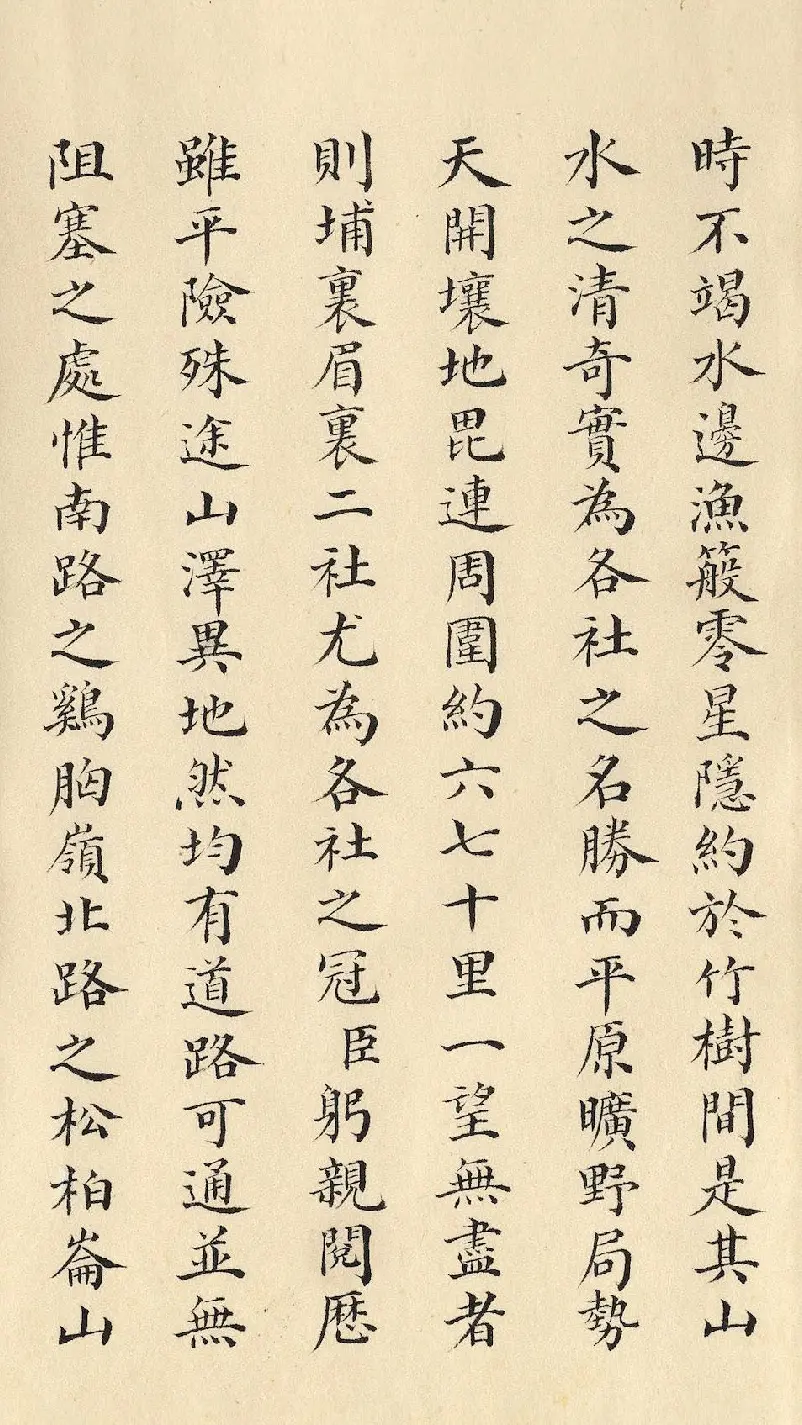 時不竭水邊漁簰零星隱約於竹樹間是其山
水之清奇實為各社之名勝而平原曠野局勢
天開壤地毘連周圍約六七十里一望無盡者
則埔裏眉裏二社尤為各社之冠臣躬親閱歷
雖平險殊途山澤異地然均有道路可通並無
阻塞之處惟南路之鷄胸嶺北路之松柏崙山